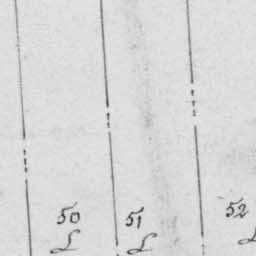 50 51 52
L L L